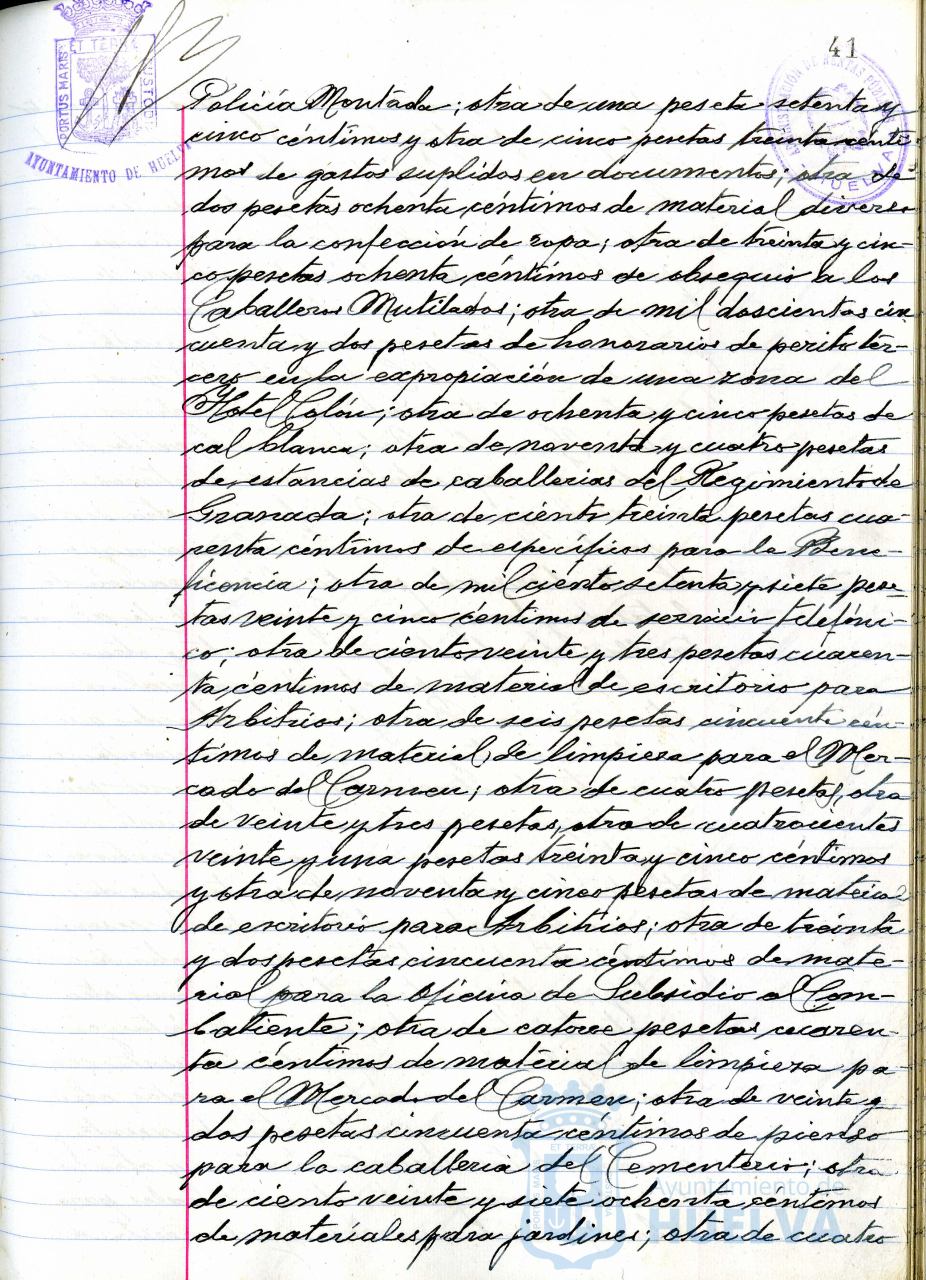 41
PORTUS MARIS ET TERRAE CUSTODIA
AYUNTAMIENTO DE HUELVA
HUELVA
Policía Montada; otra de una peseta setenta y
cinco céntimos y otra de cinco pesetas treinta cénti-
mos de gastos suplidos en documentos; otra de
dos pesetas ochenta céntimos de material diverso
para la confección de ropa; otra de treinta y cin-
co pesetas ochenta céntimos de obsequio a los
Caballeros Mutilados; otra de mil doscientas cin-
cuenta y dos pesetas de honorarios de perito ter-
cero en la expropiación de una zona del
Hotel Colón; otra de ochenta y cinco pesetas de
cal blanca; otra de noventa y cuatro pesetas
de estancias de caballerias del Regimiento de
Granada; otra de ciento treinta pesetas cua-
renta céntimos de específicos para la Bene-
ficencia; otra de mil ciento setenta y siete pese-
tas veinte y cinco céntimos de servicio telefóni-
co; otra de ciento veinte y tres pesetas cuaren-
ta céntimos de material de escritorio para
Arbitrios; otra de seis pesetas cincuenta cén-
timos de material de limpieza para el Mer-
cado del Carmen; otra de cuatro pesetas, otra
de veinte y tres pesetas, otra de cuatrocientas
veinte y una pesetas treinta y cinco céntimos
y otra de noventa y cinco pesetas de material
de escritorio para Arbitrios; otra de treinta
y dos pesetas cincuenta céntimos de mate-
rial para la Oficina de Subsidio al Com-
batiente; otra de catorce pesetas cuaren-
ta céntimos de material de limpieza pa-
ra el Mercado del Carmen; otra de veinte y
dos pesetas cincuenta céntimos de pienso
para la caballeria del Cementerio; otra
de ciento veinte y siete ochenta céntimos
de materiales para jardines; otra de cuatro
Ayuntamiento de
HUELVA